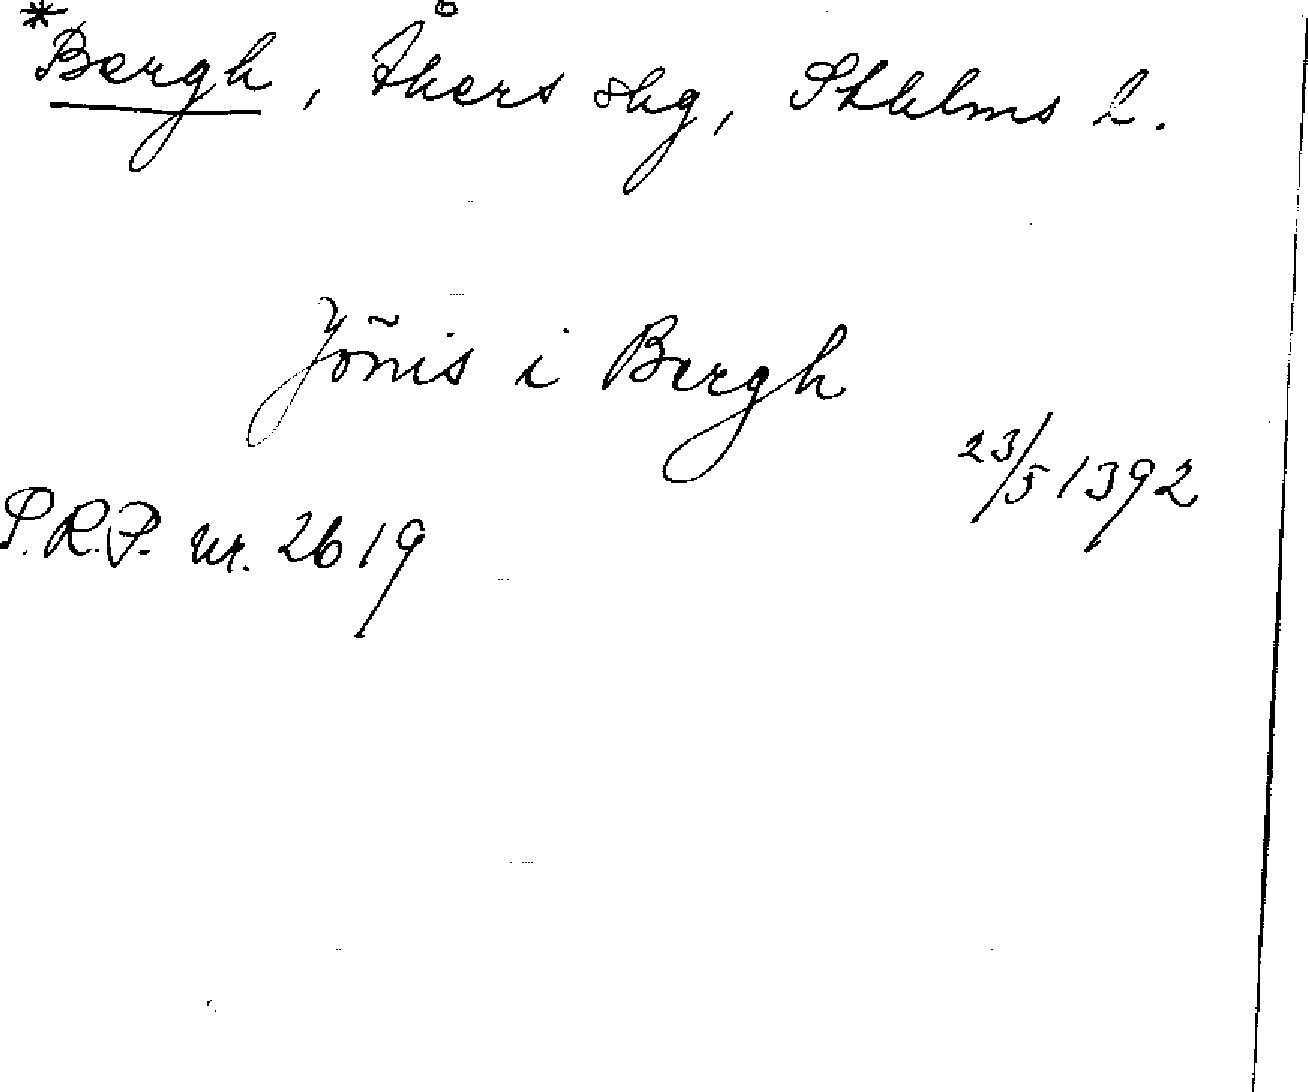 *Bergh, Åkers skg, Sthlms l.
Jõnis i Bergh
23/5 1392
S.R.P. nr. 2619